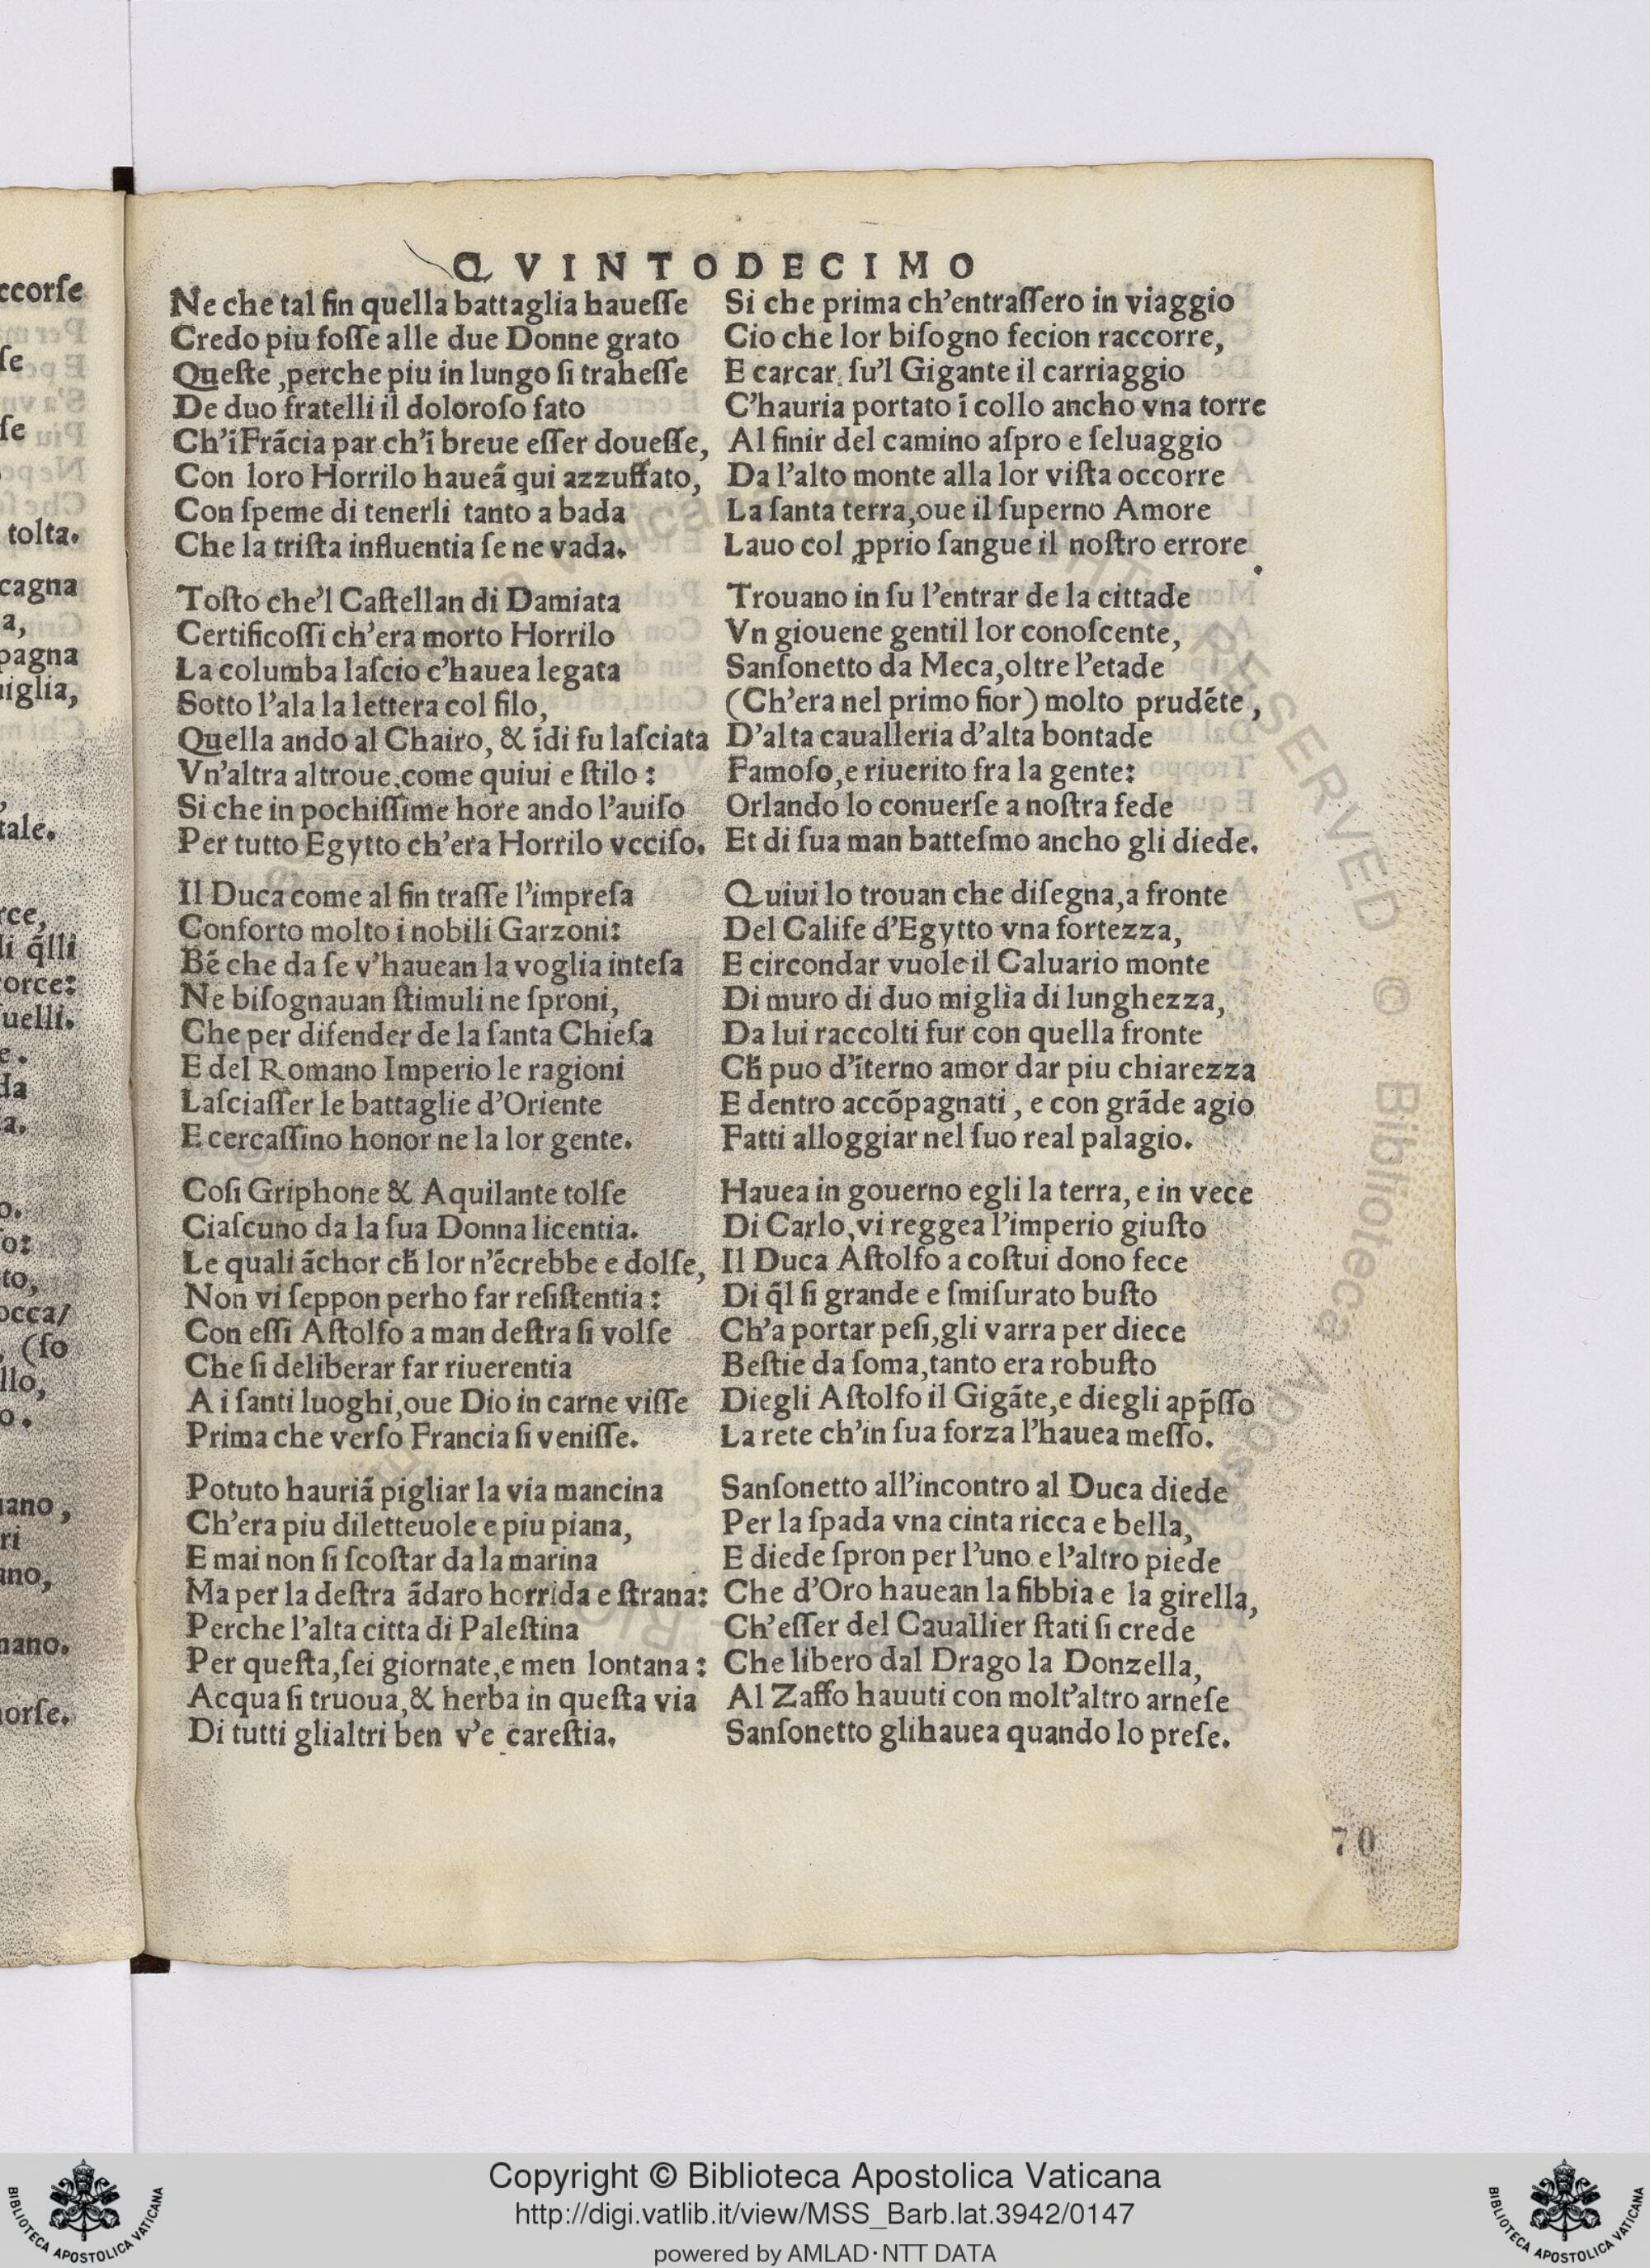 QVINTODECIMO
Ne che tal fin quella battaglia haueſſe
Credo piu foſſe alle due Donne grato
Queſte ,perche piu in lungo ſi traheſſe
De duo fratelli il doloroſo fato
Ch'ĩ Frãcia par ch'ĩ breue eſſer doueſſe,
Con loro Horrilo haueã qui azzuffato,
Con ſpeme di tenerli tanto a bada
Che la triſta influentia ſe ne vada.
Toſto che'l Caſtellan di Damiata
Certificoſſi ch'era morto Horrilo
La columba laſcio c'hauea legata
Sotto l'ala la lettera col filo,
Quella ando al Chairo, & ĩdi fu laſciata
Vn'altra altroue,come quiui e ſtilo :
Si che in pochiſſime hore ando l'auiſo
Per tutto Egytto ch'era Horrilo vcciſo.
Il Duca come al fin traſſe l'impreſa
Conforto molto i nobili Garzoni:
Bẽ che da ſe v'hauean la voglia inteſa
Ne biſognauan ſtimuli ne ſproni,
Che per difender de la ſanta Chieſa
E del Romano Imperio le ragioni
Laſciaſſer le battaglie d'Oriente
E cercaſſino honor ne la lor gente.
Coſi Griphone & Aquilante tolſe
Ciaſcuno da la ſua Donna licentia.
Le quali ãchor ch̃ lor n'ẽcrebbe e dolſe,
Non vi ſeppon perho far reſiſtentia :
Con eſſi Aſtolfo a man deſtra ſi volſe
Che ſi deliberar far riuerentia
A i ſanti luoghi,oue Dio in carne viſſe
Prima che verſo Francia ſi veniſſe.
Potuto hauriã pigliar la via mancina
Ch'era piu diletteuole e piu piana,
E mai non ſi ſcoſtar da la marina
Ma per la deſtra ãdaro horrida e ſtrana:
Perche l'alta citta di Paleſtina
Per queſta,ſei giornate,e men lontana :
Acqua ſi truoua,& herba in queſta via
Di tutti glialtri ben v'e careſtia.
Si che prima ch'entraſſero in viaggio
Cio che lor biſogno fecion raccorre,
E carcar ſu'l Gigante il carriaggio
C'hauria portato ĩ collo ancho vna torre
Al finir del camino aſpro e ſeluaggio
Da l'alto monte alla lor viſta occorre
La ſanta terra,oue il ſuperno Amore
Lauo col ꝓprio ſangue il noſtro errore.
Trouano in ſu l'entrar de la cittade
Vn giouene gentil lor conoſcente,
Sanſonetto da Meca,oltre l'etade
(Ch'era nel primo fior) molto prudẽte ,
D'alta caualleria d'alta bontade
Famoſo,e riuerito fra la gente:
Orlando lo conuerſe a noſtra fede
Et di ſua man batteſmo ancho gli diede.
Quiui lo trouan che diſegna,a fronte
Del Calife d'Egytto vna fortezza,
E circondar vuole il Caluario monte
Di muro di duo miglia di lunghezza,
Da lui raccolti fur con quella fronte
Ch̃ puo d'ĩterno amor dar piu chiarezza
E dentro accõpagnati , e con grãde agio
Fatti alloggiar nel ſuo real palagio.
Hauea in gouerno egli la terra, e in vece
Di Carlo,vi reggea l'imperio giuſto
Il Duca Aſtolfo a coſtui dono fece
Di q̃l ſi grande e ſmiſurato buſto
Ch'a portar peſi,gli varra per diece
Beſtie da ſoma,tanto era robuſto
Diegli Aſtolfo il Gigãte,e diegli app̃ſſo
La rete ch'in ſua forza l'hauea meſſo.
Sanſonetto all'incontro al Duca diede
Per la ſpada vna cinta ricca e bella,
E diede ſpron per l'uno e l'altro piede
Che d'Oro hauean la fibbia e la girella,
Ch'eſſer del Cauallier ſtati ſi crede
Che libero dal Drago la Donzella,
Al Zaffo hauuti con molt'altro arneſe
Sanſonetto glihauea quando lo preſe.
70
Copyright © Biblioteca Apostolica Vaticana
http://digi.vatlib.it/view/MSS_Barb.lat.3942/0147
powered by AMLAD·NTT DATA
BIBLIOTECA APOSTOLICA VATICANA
BIBLIOTECA APOSTOLICA VATICANA